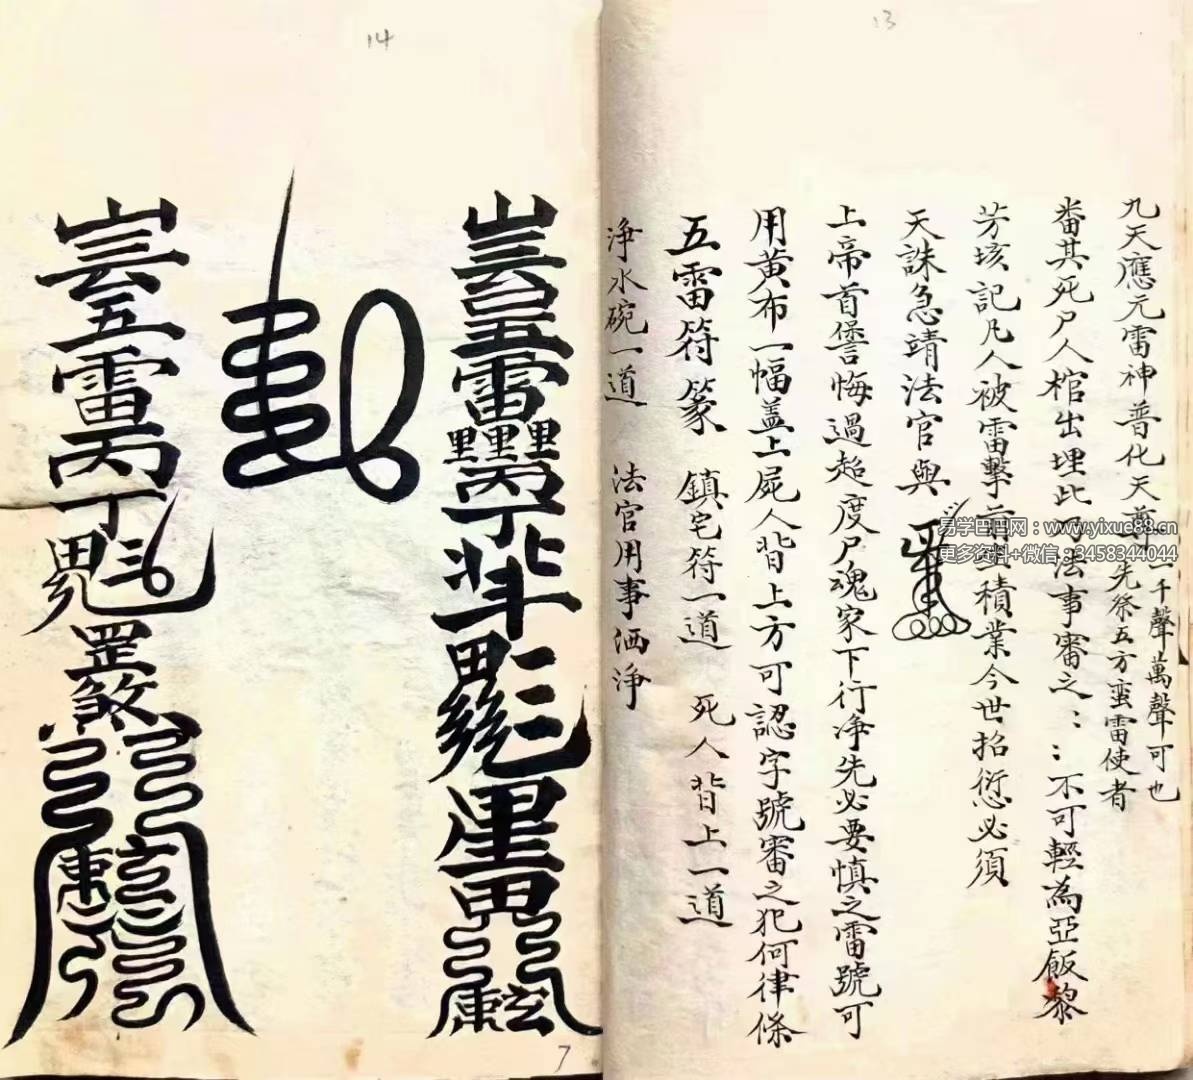 13
九天應元雷神普化天尊一千聲萬聲可也
先祭五方蛮雷使者
畨其死尸人棺出埋此乃法事審之：：不可輕為亞飯黎
芳垓記凡人被雷擊前生積業今世招愆必須
天誅急靖法官與
上帝首堂悔過超度尸魂家下行净先必要慎之雷號可
用黄布一幅盖上屍人背上方可認字號審之犯何律條
五雷符篆 鎮宅符一道 死人背上一道
淨水碗一道 法官用事洒淨
易学巴巴网：www.yixue88.com
更多资料+微信：3458344044
14
五雷
丙丁
罡煞
7